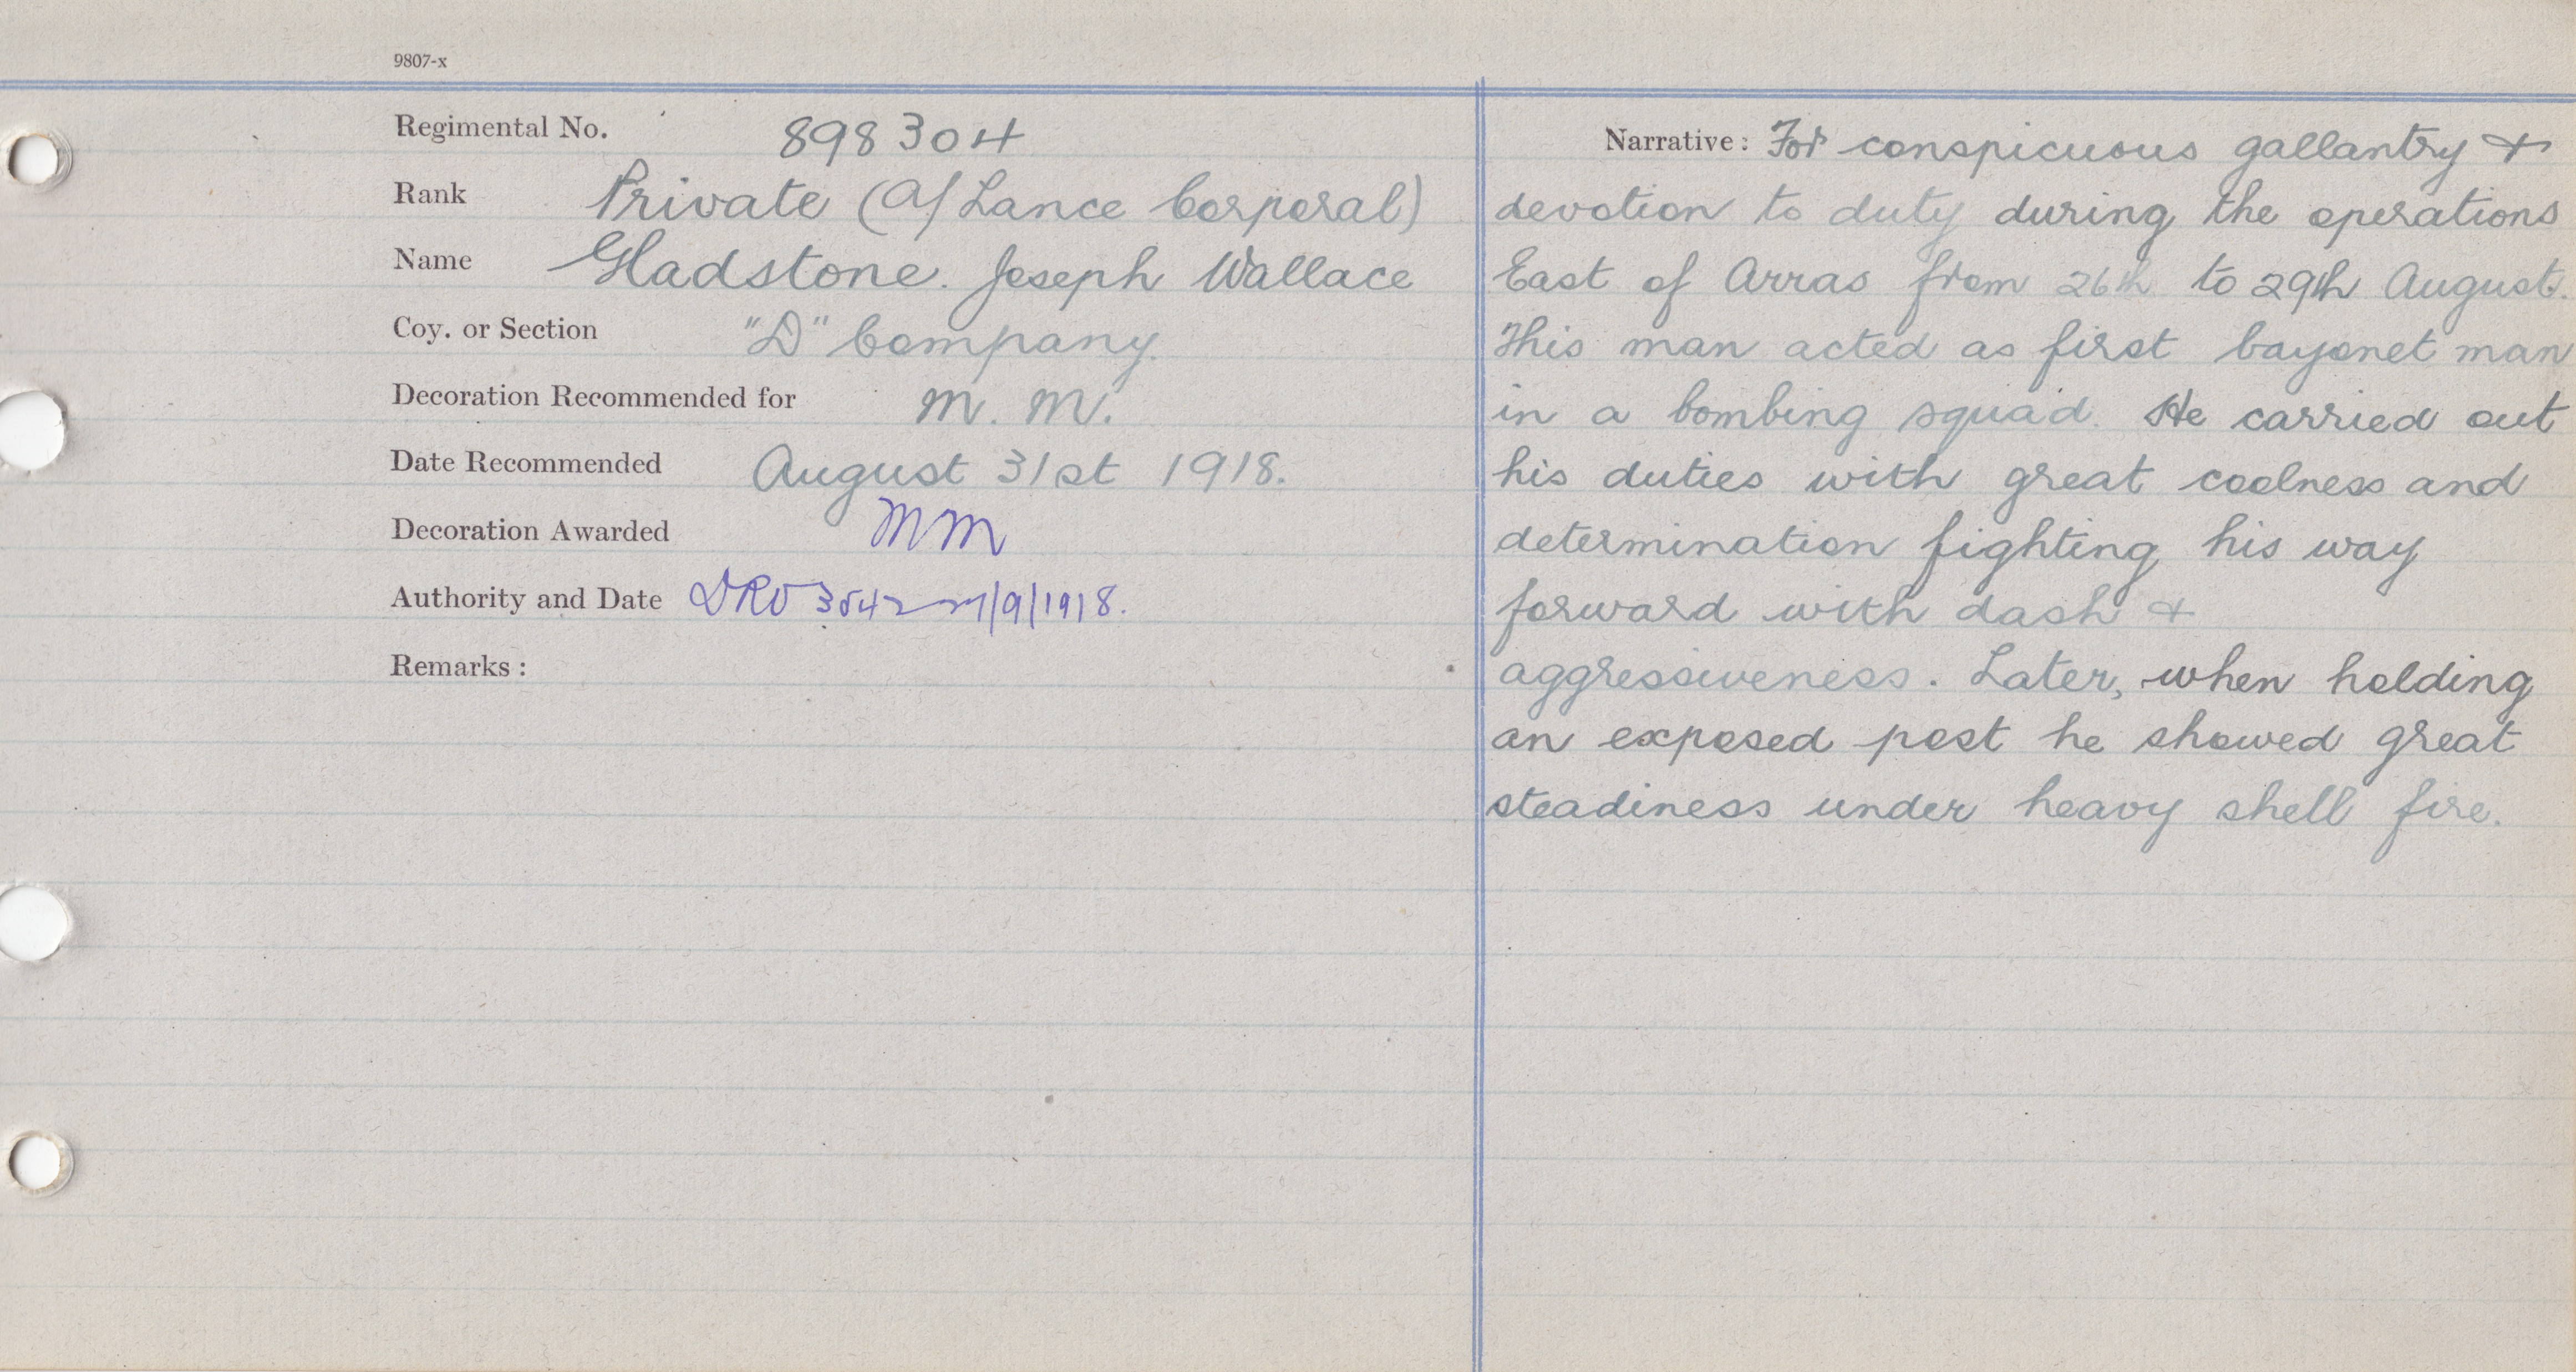 9807-x
Regimental No. 898304
Rank Private (A/Lance Corporal)
Name Gladstone. Joseph Wallace
Coy. or Section "D" Company.
Decoration Recommended for M. M.
Date Recommended August 31st 1918.
Decoration Awarded MM
Authority and Date DRO /9/1918.
Remarks :
Narrative : For conspicuous gallantry &
devotion to duty during the operations
East of Arras from 26th to 29th August.
This man acted as first bayonet man
in a bombing squad. He carried out
his duties with great coolness and
determination fighting his way
forward with dash &
aggressiveness. Later, when holding
an exposed post he showed great
steadiness under heavy shell fire.